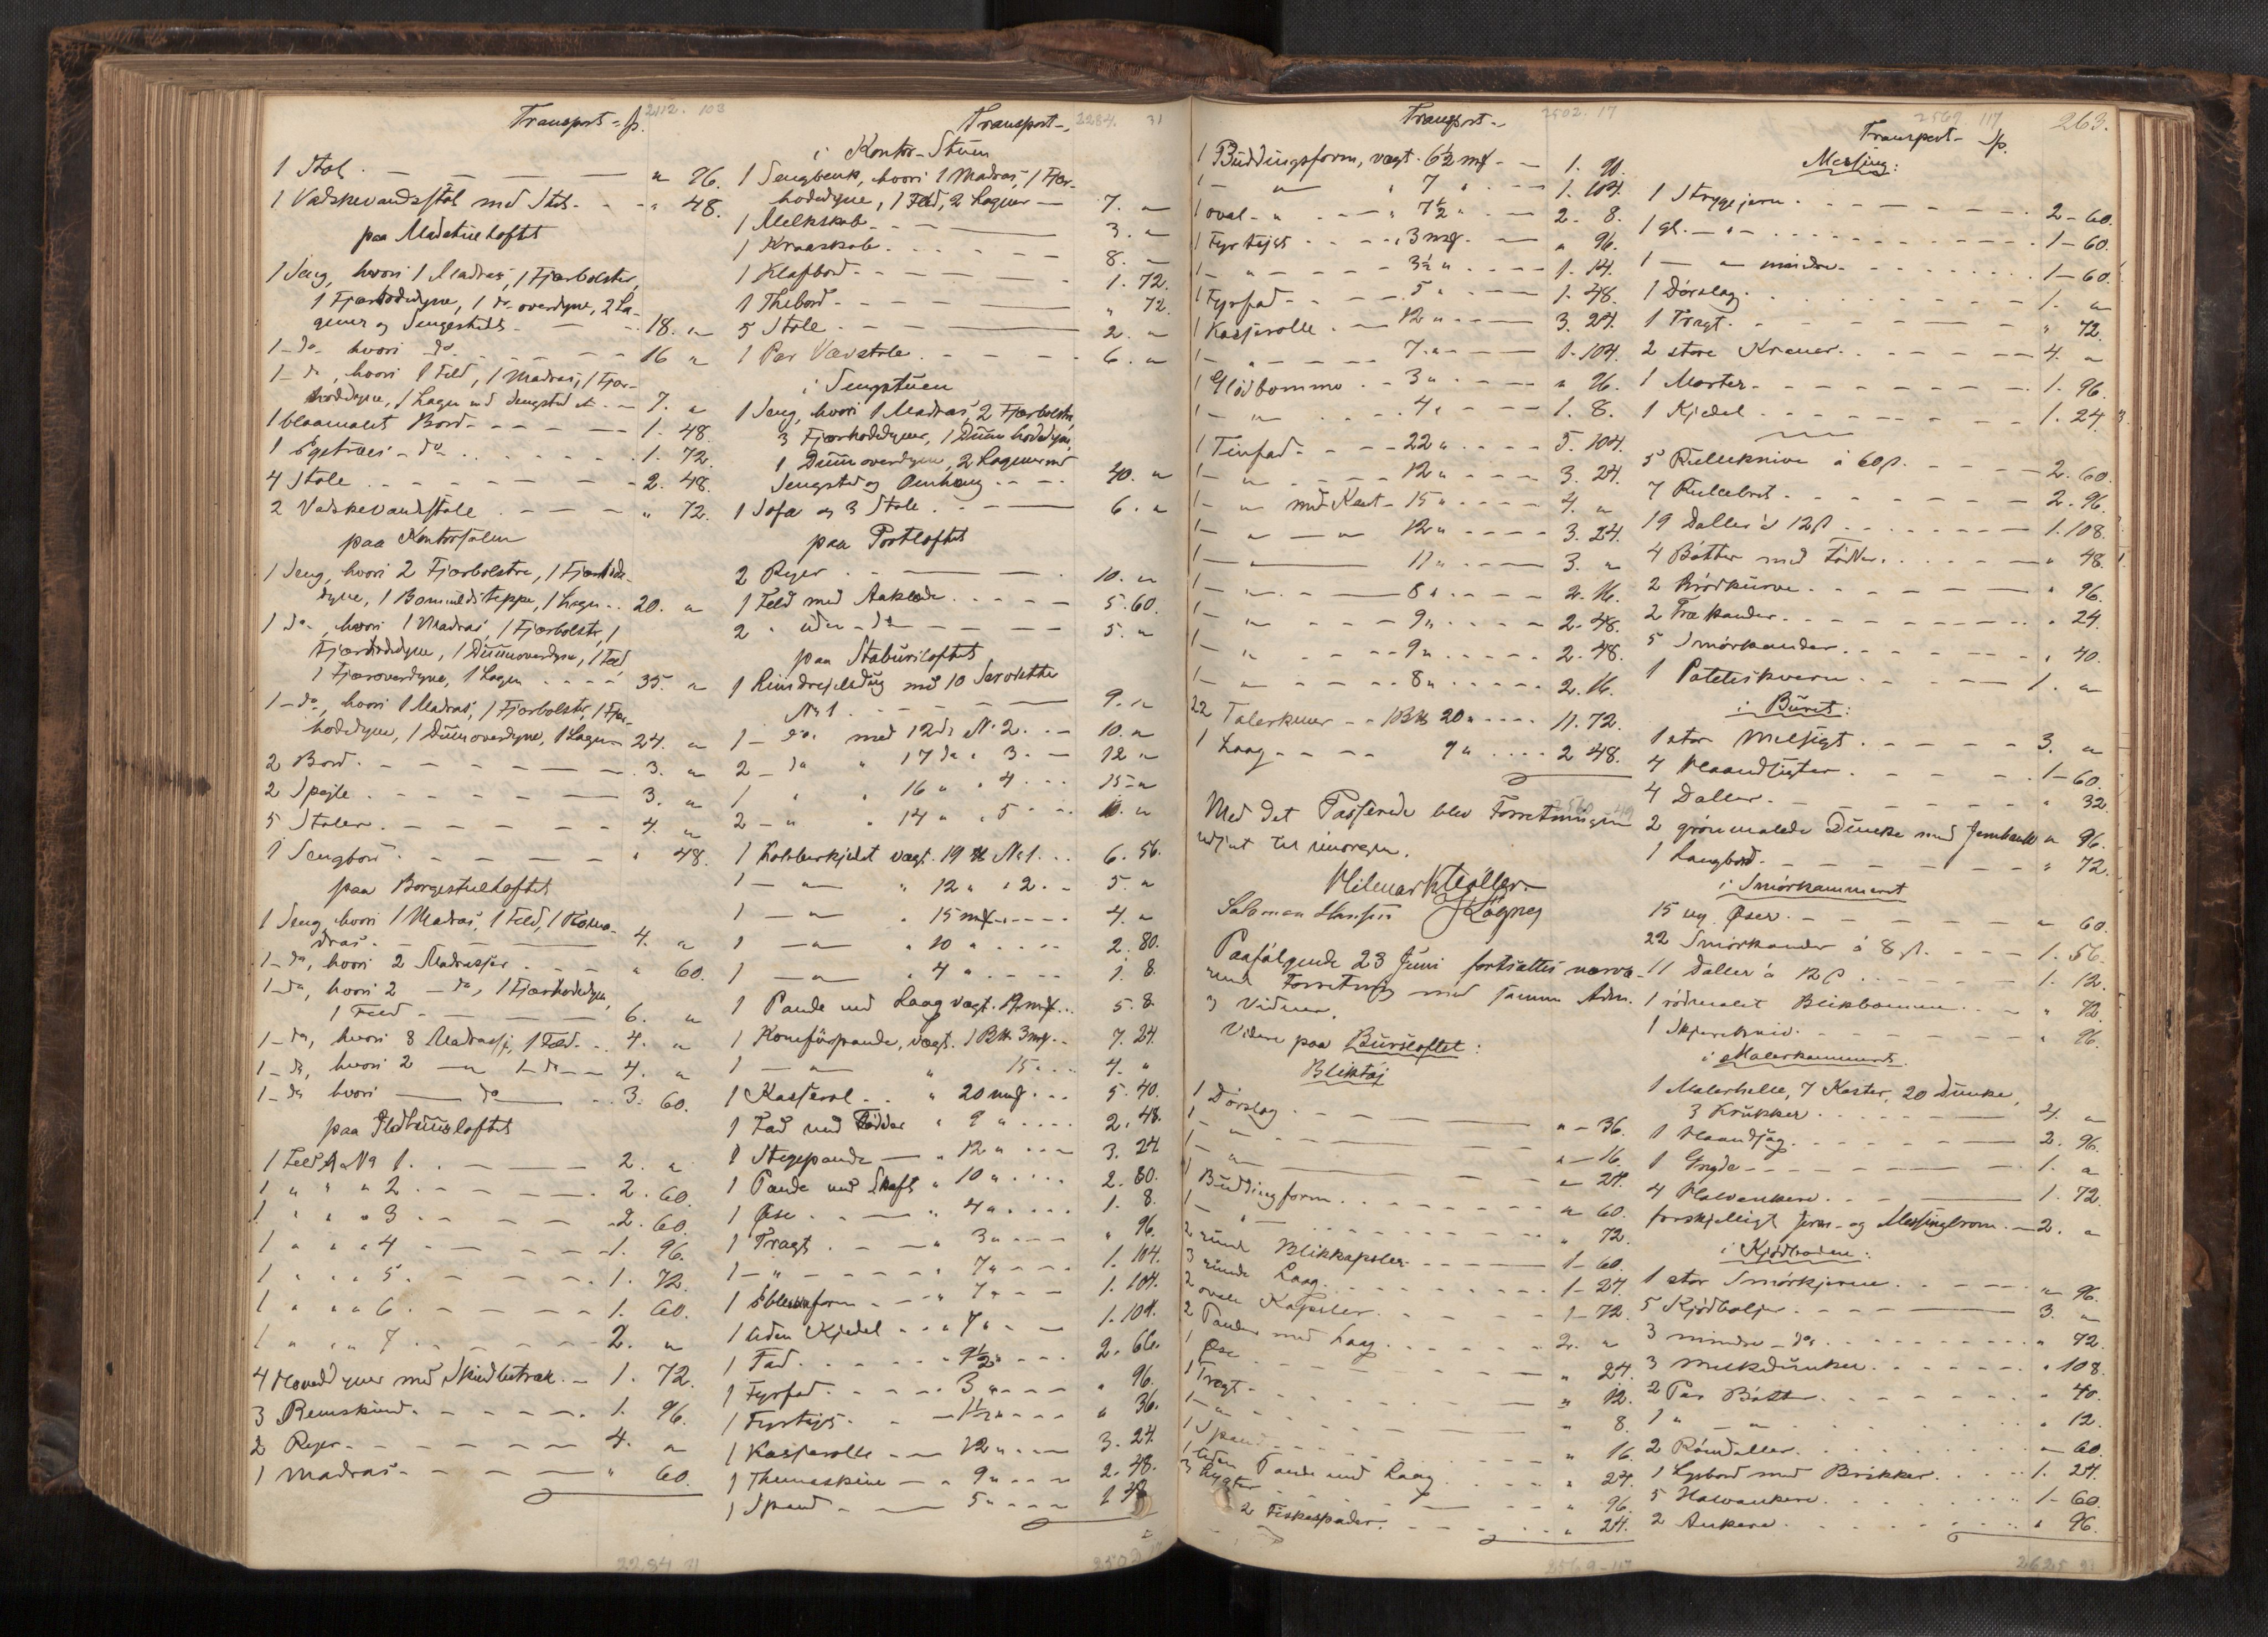 Transport - Sp. 2112. 103
1 Stol. " 96.
1 Vadskevandsstol med Stel. " 48.
paa Madstueloftet
1 Seng, hvori 1 Madras, 1 Fjærbolster,
1 Fjærhodedyne, 1 do overdyne, 2 La-
gener og Sengestedet 18. "
1 - do hvori do 16 "
1 - do, hvori 1 Feld, 1 Madras, 1 Fjær-
hoddyne, 1 Lagen med Sengested 7. "
1 blaamalet Bord 1. 48.
1 Egetræes - do 1. 72.
4 Stole 2. 48.
2 Vadskevandsstole " 72.
paa Kontorsalen
1 Seng, hvori 2 Fjærbolstre, 1 Fjærhode-
dyne, 1 Bomuldsteppe, 1 Lagen 20. "
1 do, hvori 1 Madras, 1 Fjærbolster, 1
Fjærhodedyne, 1 Duunoverdyne, 1 Feld
1 Fjæroverdyne, 1 Lagen 35. "
1 - do, hvori 1 Madras, 1 Fjærbolster, 1 Fjær-
hodedyne, 1 Duunoverdyne, 1 Lagen 24. "
2 Bord 3. "
2 Speile 3. "
5 Stoler 4. "
1 Sengbord " 48.
paa Borgestueloftet
1 Seng, hvori 1 Madras, 1 Feld, 1
dras. 4. "
1 - do, hvori 2 Madrasser " 60.
1 - do, hvori 2 - do, 1 Fjærhodedyne,
1 Feld 6. "
1 - do, hvori 8 Madrasser, 1 Feld 4. "
1 - do, hvori 2 - " 1 - do 4. "
1 - do hvori do 3. 60.
paa Ildhuusloftet
1 Feld No 1. 2. "
1 " " " 2 2. 60.
1 " " " 3 2. 60.
1 " " " 4 1. 96.
1 " " " 5. 1. 72.
1 " " " 6 1. 60.
1 " " " 7 2. "
4 Hoveddyner med Skindbetræk 1. 72.
3 Remskind 1. 96.
2 Ryer 4. "
1 Madras " 60.
2284 31
Transport - 2284. 31
i Kontor-Stuen
1 Sengbenk, hvori 1 Madras, 1 Fjær-
hodedyne, 1 Feld, 2 Lagner 7. "
1 Melkskab 3. "
1 Kraaskab 8. "
1 Klafbord 1. 72.
1 Thebord " 72.
5 Stole 2. "
1 Par Vævstole 6. "
i Sengstuen
1 Seng, hvori 1 Madras, 2 Fjærbolstre,
3 Fjærhodedyner, 1 Duunhodedyne,
1 Duunoverdyne, 2 Lagner med
Sengsted og Omhæng 40. "
1 Sofa og 3 Stole 6. "
paa Portloftet
2 Ryer 10. "
1 Feld med Aaklæde 5. 60.
2 " uden - do 5. "
paa Stabursloftet
med 10 Servietter
No 1. 9. "
1 - do med 12 do No 2. 10. "
2 - do " 17 do " 3. 12 "
1 " " 16 " " 4 15 - "
2 - " " 14 " " 5
1 Kobberkjedel vægt. 19 ℔ No 1. 6. 56.
1 - " " 12 " " 2. 5. "
1 - " " 15 mk 4. "
1 - " " 10 " 2. 80.
1 - " " 4 " 1. 8.
1 Pande med Laag vægt. 5. 8.
vægt. 1 B℔ 3 mk 7. 24.
1 - " " 15 " 4. "
1 Kasserol " 20 mk 5. 40.
1 Fad med Fødder " 9 " 2. 48.
1 Stegepande " 12 " 3. 24.
1 Pande med Skaft " 10 " 2. 80.
1 Øse " 4 " 1. 8.
1 Tragt " 3 " " 96.
1 - " " 7 " 1. 104.
1 Eblekageform " 7 " 1. 104.
1 liden Kjedel " 7 " 1. 104.
1 Fad " 9½ " 2. 66.
1 Fyrfad " 3 " " 96.
1 Fyrtøjs 1½ " " 36.
1 Kasserolle 12 " 3. 24.
1 Themaskine 9 " 2. 48.
1 Spand 5 " 1 48
2502 17
Transport - 2502. 17
1 Buddingsform, vægt. 6½ mk 1. 90.
1 - " " 7 " 1. 104.
1 oval - " " 7½ " 2. 8.
1 Fyrtøjs " 3 mk " 96.
1 - " 3½ " 1. 14.
1 Fyrfad 5 " 1. 48.
1 Kasserolle 12 " 3. 24.
1 - " 7 " 1. 104.
1 Glødbomme 3 " " 96.
1 - " 4 " 1. 8.
1 Tinfad 22 " 5. 104.
1 - " 12 " 3. 24.
1 - " med Kant 15 " 4. "
1 - " - " 12 " 3. 24.
1 - " 11 " 3. "
1 - " 8 " 2. 16.
1 - " 9 " 2. 48.
1 - " 9 " 2. 48.
1 - " 8 " 2. 16.
22 Talerkener 1 B℔ 20 " 11. 72.
1 Laag 9 " 2 48.
2560 49
Med det Passerede blev Forretningen
udsat til imorgen.
Salomon Hansen
Paafølgende 23 Juni fortsattes nærvæ-
rende Forretning med samme Adm.
3 Vidner.
Videre paa Bursloftet:
Bliktøj
1 Dørslag " - 36.
1 - " " - 16.
1 - " " - 24.
1 Buddingform " 60.
1 - " " 72.
2 runde Blikkapsler 1 - 60.
3 runde Laag 1 - 24.
2 ovale Kapsler 1 - 72.
2 Pander med Laag 2. "
1 Øse " 24.
1 Tragt " 12.
1 - " " 8.
1 Spand " 16.
1 liden Pande med Laag " 24.
3 Lygter " 96.
2 Fiskespader " 24.
2569 - 117
2569. 117 263.
Transport - Sp.
Messing:
1 Strygejern 2 - 60.
1 gl. - " - 1 - 60.
1 - " mindre 1 - 60.
1 Dørslag 1. "
1 Tragt " 72.
2 store Kraner 4. "
1 Morter 1. 96.
1 Kjedel 1. 24
5 Rulleknive á 60 β. 2. 60.
7 Rullebret 2. 96.
19 Daller á 12 β 1. 108.
4 Bøtter med Fødder " 48.
2 Brødkurve " 96.
2 Trækander " 24.
5 Smørkander " 40.
1 Poteteskvern 1. "
i Buret:
1 stor Melsigt 3. "
4 Haandsigter 1 - 60.
4 Daller " 32
2 grønmalede Dunke med Jernbaand " 96.
1 Langbord " 72.
i Smørkammeret
15 ny Øser " 60.
22 Smørkander á 8 β. 1. 56.
11 Daller á 12 β 1. 12.
1 rødmalet Blikbomme " 72.
1 Skjærekniv " 96.
i Malerkammeret.
1 Malerhelle, 7 Koster, 20 Dunke,
3 Krukker 4. "
1 Haandsag 2. 96.
1 Gryde 1. "
4 Halvankere 1. 72
forskjelligt Jern- og Messingkrom 2. "
i Kjødboden:
1 stor Smørkjerne " 96.
5 Kjødbaljer 3. "
3 mindre - do " 72.
3 Melkedunker " 108.
2 Par Bøtter " 40.
1 " - " " 12.
2 Rømdaller " 60.
1 Lysbord med Brikker 1. 24.
5 Halvankere 1 - 60.
2 Ankere " 96.
2625 91